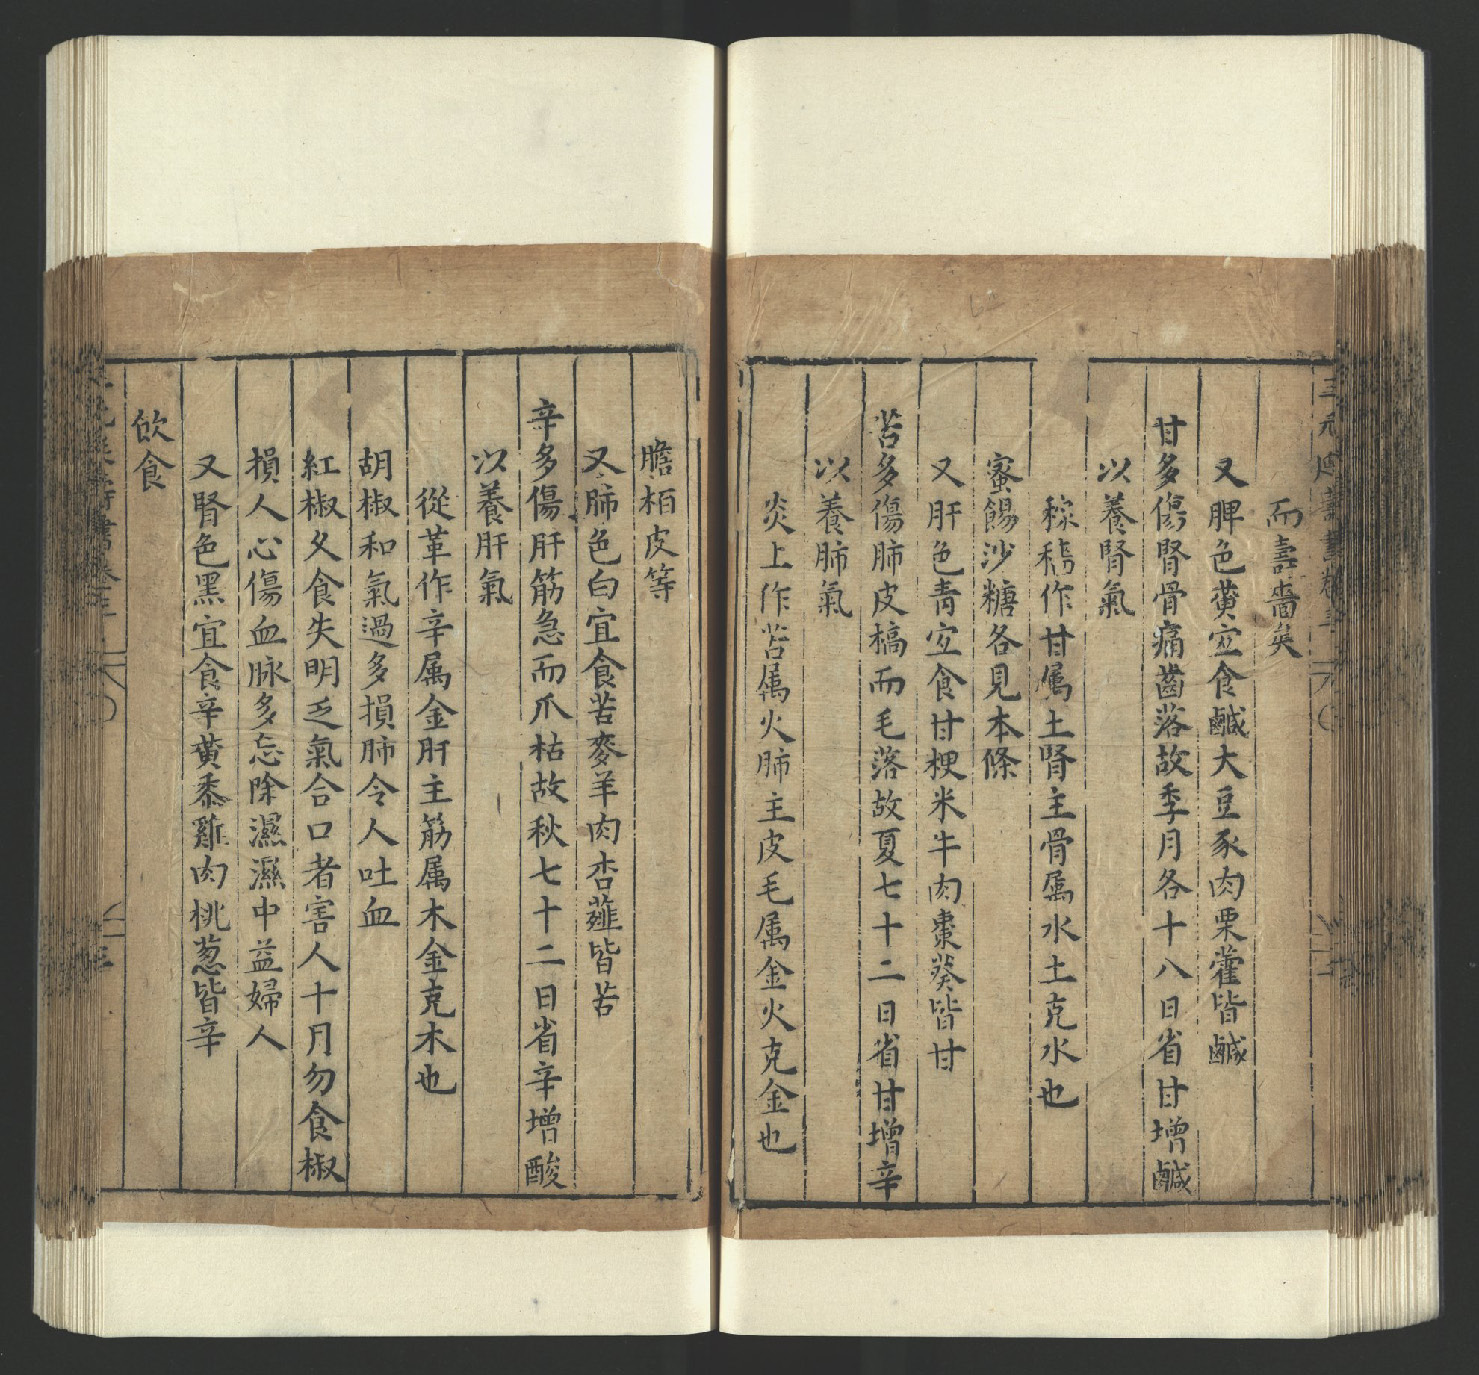 而壽嗇矣
又脾色黄宜食鹹大豆豕肉栗藿皆鹹
甘多傷腎骨痛齒落故季月各十八日省甘增鹹
以養腎氣
稼穡作甘属土腎主骨属水土克水也
蜜餳沙糖各見本條
又肝色青宜食甘粳米牛肉棗葵皆甘
苦多傷肺皮槁而毛落故夏七十二日省甘增辛
以養肺氣
炎上作苦属火肺主皮毛属金火克金也
膽栢皮等
又肺色白宜食苦麥羊肉杏薤皆苦
辛多傷肝筋急而爪枯故秋七十二日省辛增酸
以養肝氣
從革作辛属金肝主筋属木金克木也
胡椒和氣過多損肺令人吐血
紅椒乆食失明乏氣合口者害人十月勿食椒
損人心傷血脉多忘除濕濕中益婦人
又腎色黑宜食辛黄黍雞肉桃葱皆辛
飲食